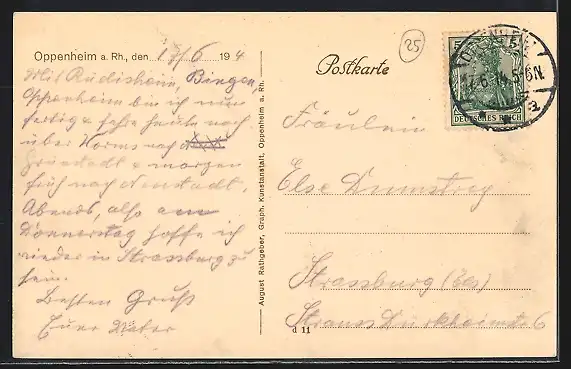 Oppenheim a. Rh., den 17/6 194
Mit Rüdisheim, Bingen,
Oppenheim bin ich nun
fertig & fahre heute noch
über Worms nach
Grünstadt & morgen
früh nach Neustadt.
Abends, also am
Donnerstag hoffe ich
wieder in Strassburg zu
sein.
Besten Gruß
Euer Vater
August Rathgeber, Graph. Kunstanstalt, Oppenheim a. Rh.
25
Postkarte
5 5
DEUTSCHES REICH
OPPENHEIM
17.6.14.5-6N.
Fräulein
Else
Strassburg (Els)
Strauss Dürkheimstr 6
d 11